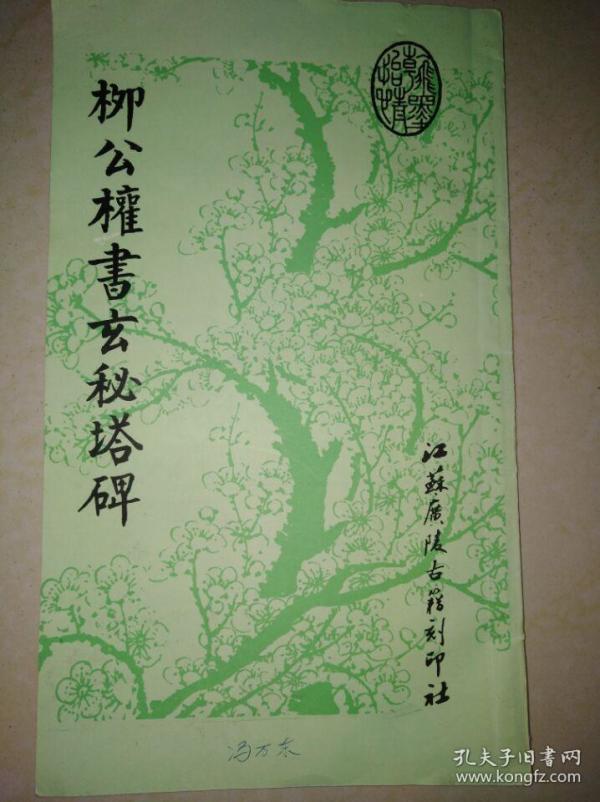 柳公權書玄秘塔碑
翰墨怡情
江蘇廣陵古籍刻印社
冯万东
孔夫子旧书网
www.kongfz.com